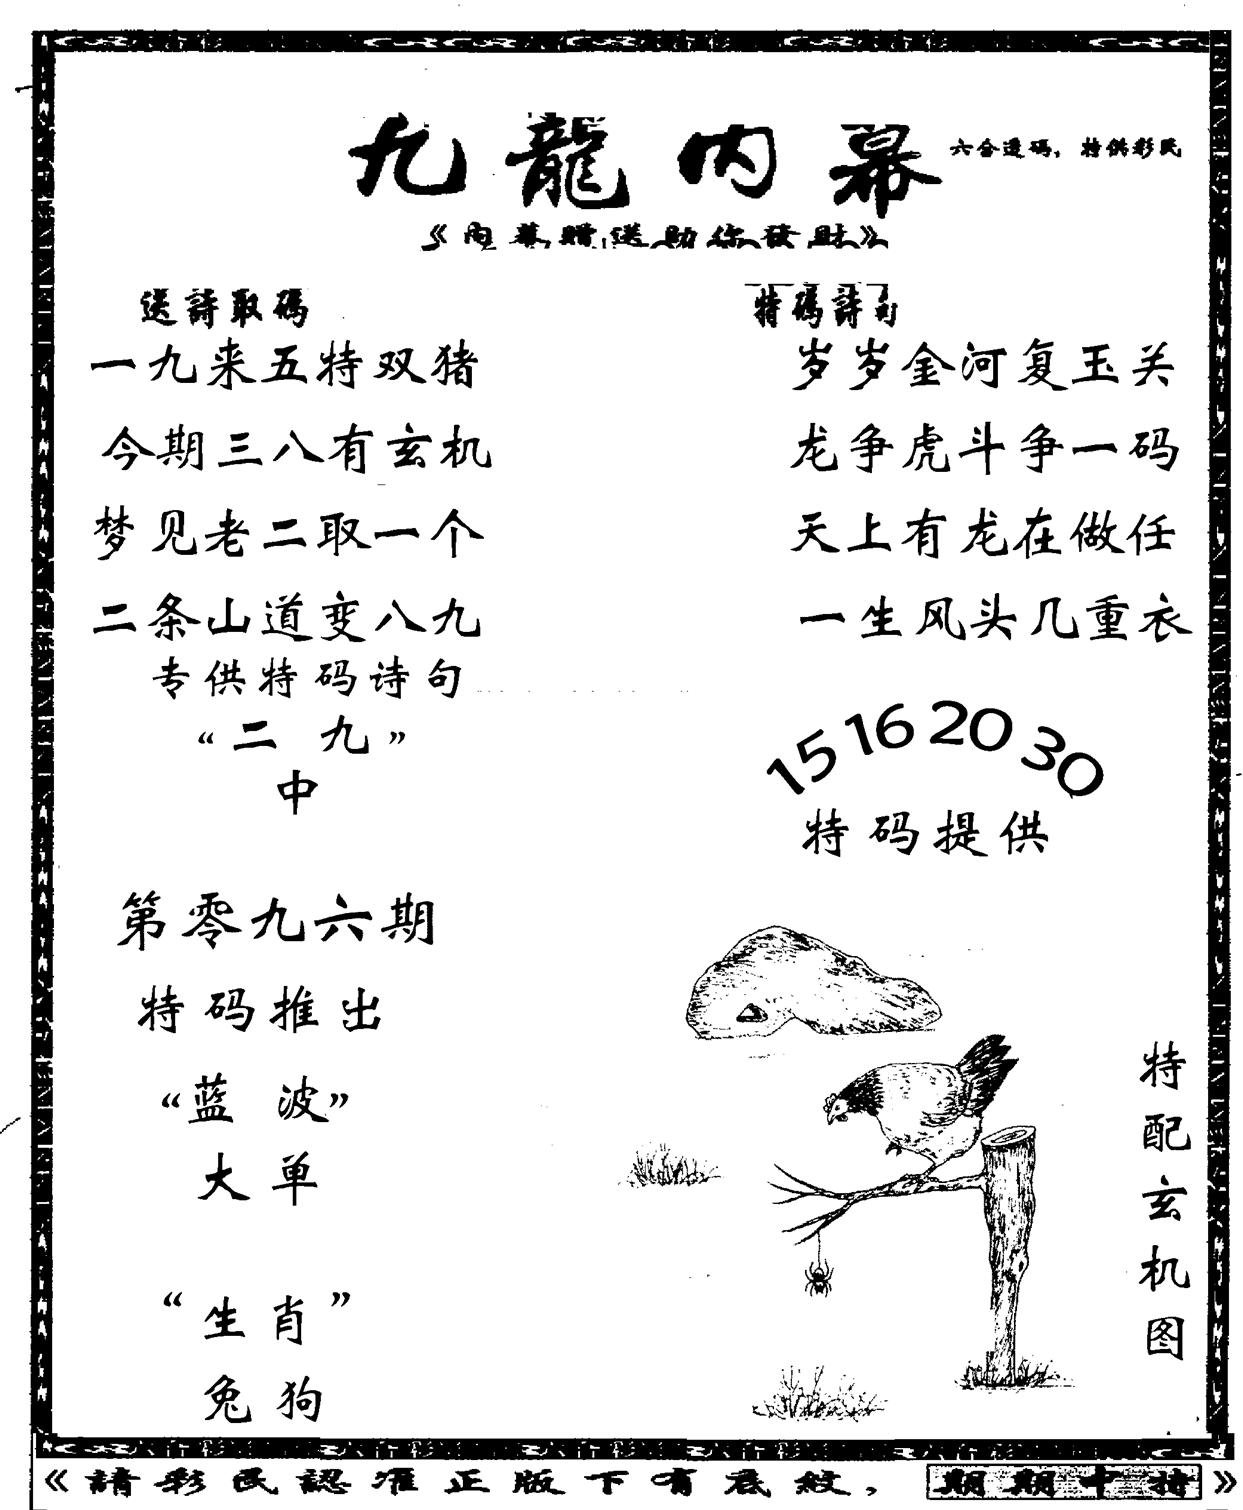 九龍内幕
六合透码，特供彩民
《内幕贈送助你發財》
送詩取碼
一九来五特双猪
今期三八有玄机
梦见老二取一个
二条山道变八九
专供特码诗句
“二九”
中
第零九六期
特码推出
“蓝波”
大单
“生肖”
兔狗
特碼詩句
岁岁金河复玉关
龙争虎斗争一码
天上有龙在做任
一生风头几重衣
15 16 20 30
特码提供
特配玄机图
《請彩民認准正版下有底紋，期期中特》